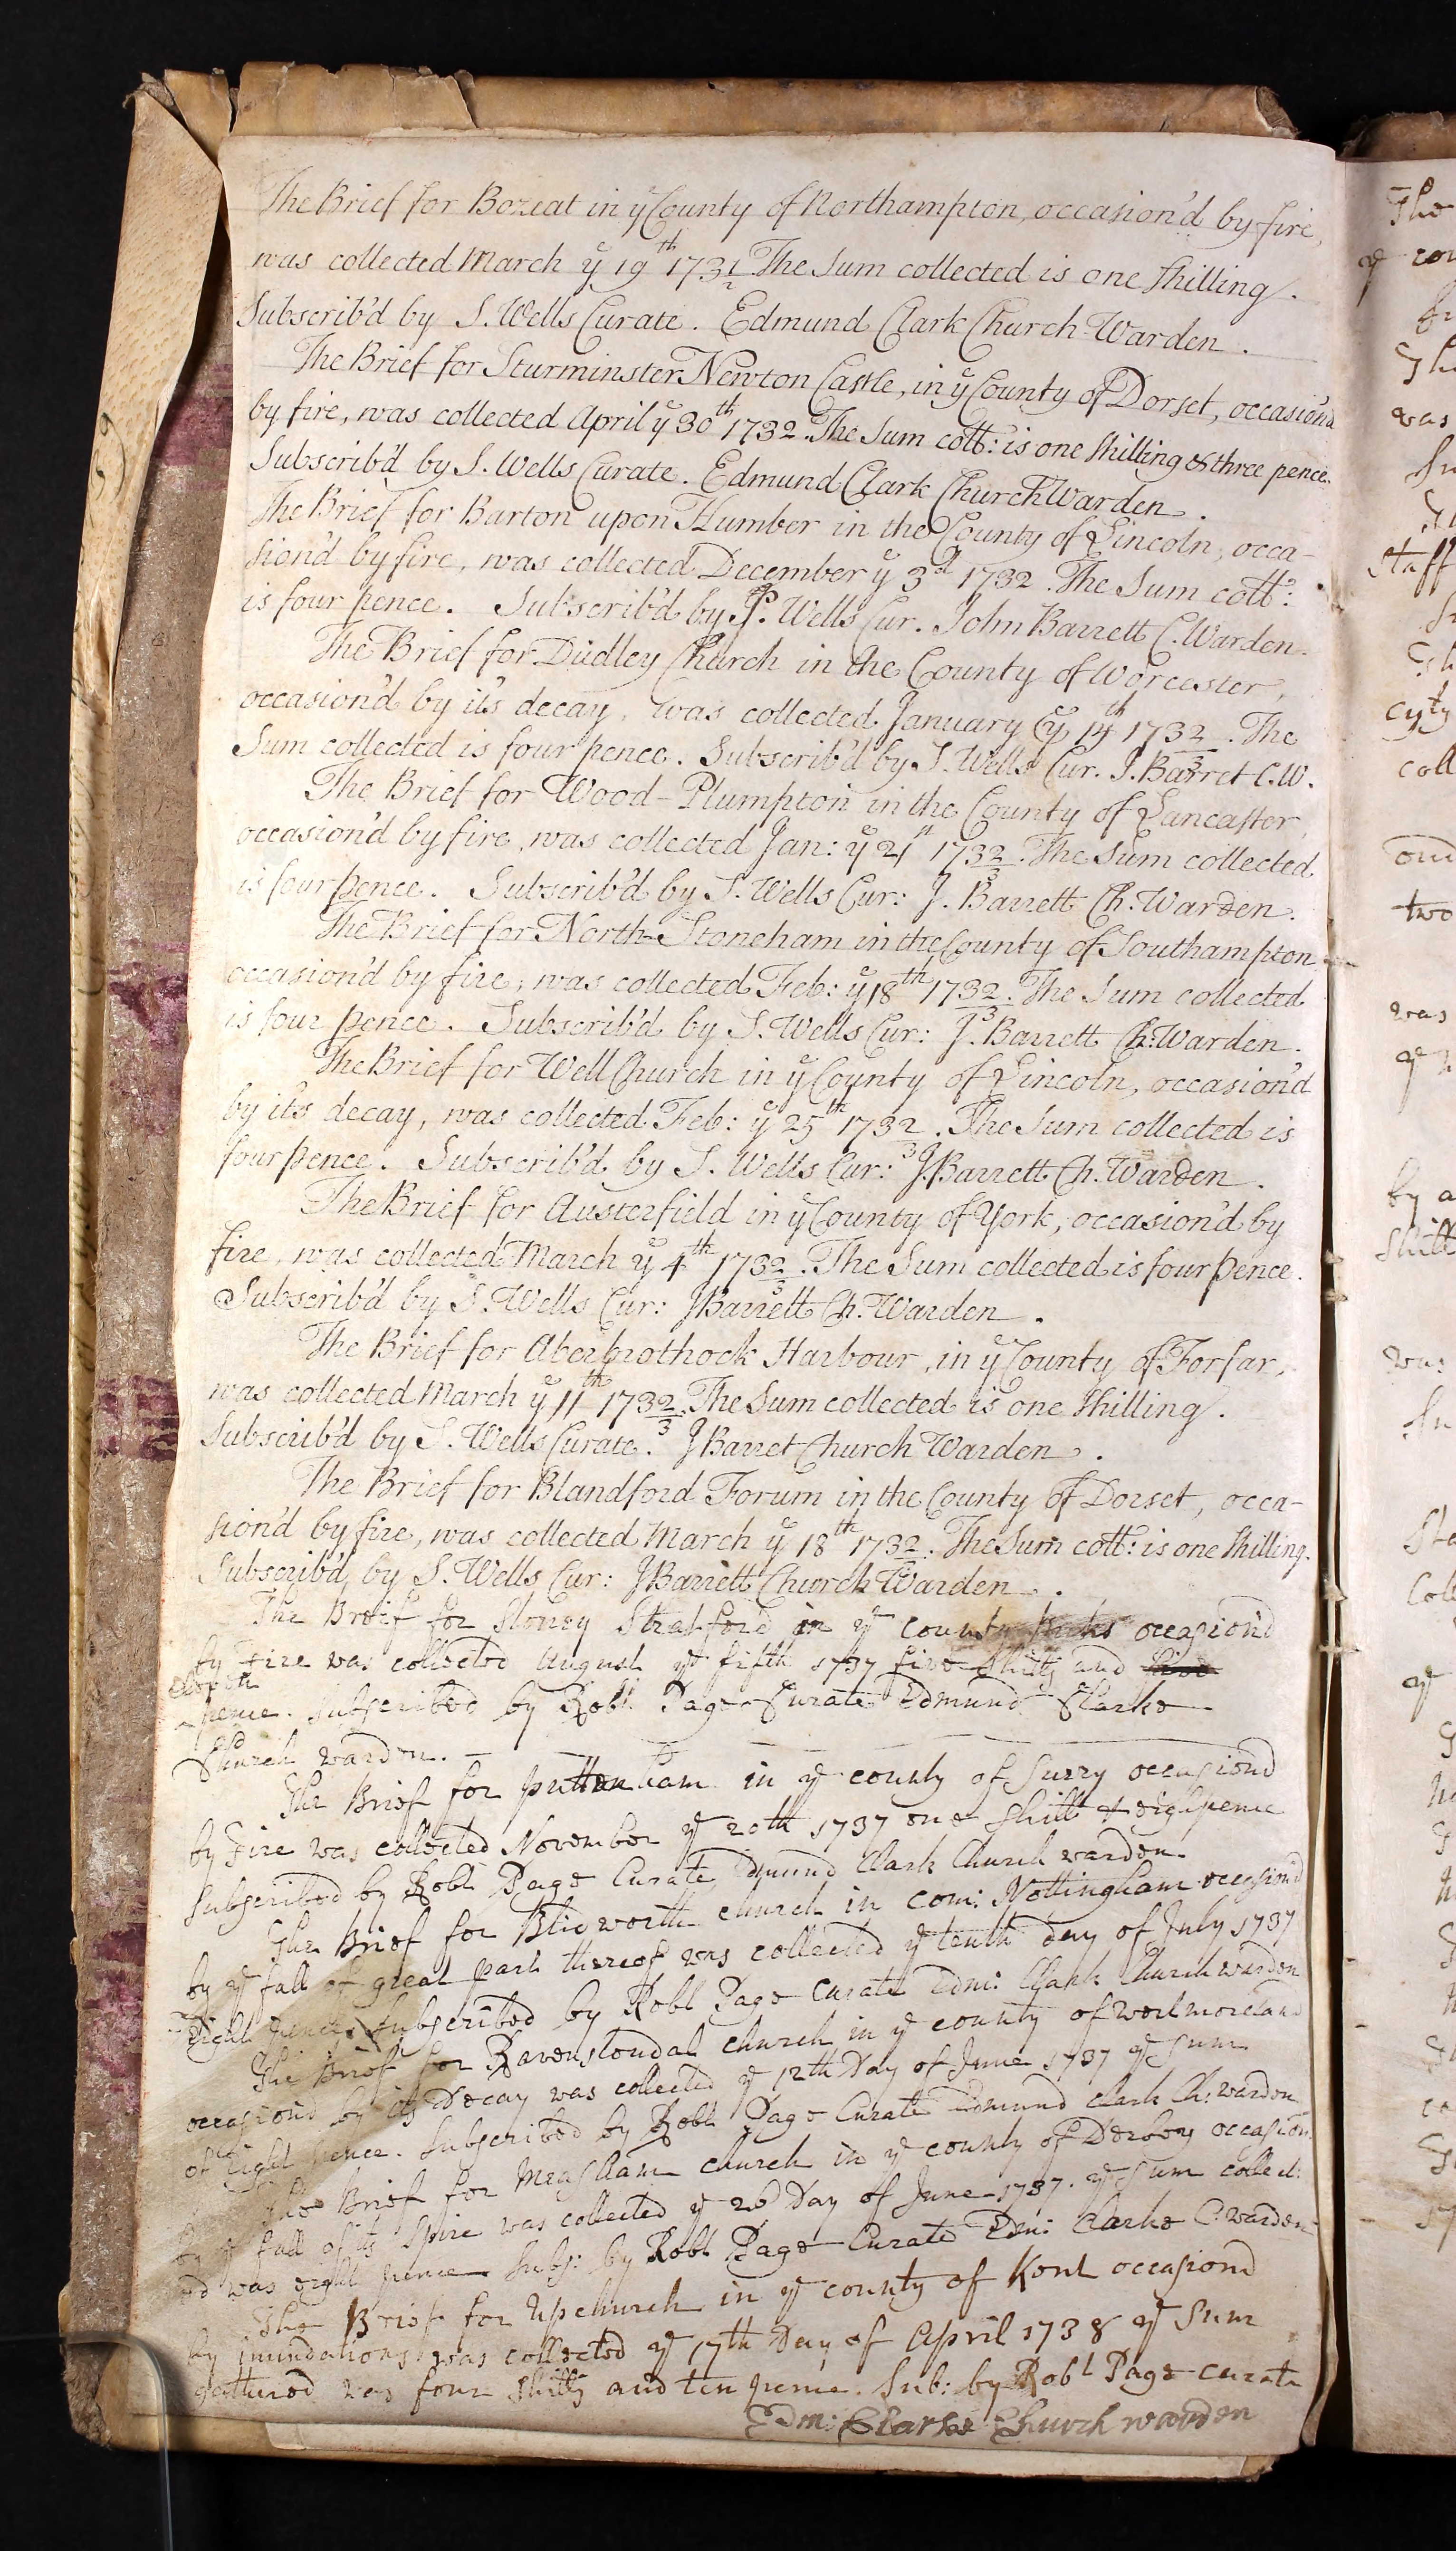 The Brief for Bozeat in yͤ County of Northampton, occasion'd by fire,
was collected March yͤ 19th 1731/2 The Sum collected is one Shilling.
Subscrib'd by S. Wells Curate. Edmund Clark Church-Warden.
The Brief for Sturminster Newton Castle, in yͤ County of Dorset, occasion'd
by fire, was collected April yͤ 30th 1732. The Sum coll: is one Shilling & three pence.
Subscrib'd by S. Wells Curate. Edmund Clark Church Warden.
The Brief for Barton upon Humber in the County of Lincoln, occa-
sion'd by fire, was collected December yͤ 3d 1732. The Sum coll:
is four pence. Subscrib'd by S. Wells Cur. John Barrett C. Warden.
The Brief for Dudley Church in the County of Worcester,
occasion'd by it's decay, was collected January yͤ 14th 1732/3. The
Sum collected is four pence. Subscrib'd by S. Wells Cur. J. Barret C.W.
The Brief for Wood-Plumpton in the County of Lancaster,
occasion'd by fire, was collected Jan: yͤ 21st 1732/3. The Sum collected
is four pence. Subscrib'd by S. Wells Cur: J. Barrett Ch. Warden.
The Brief for North-Stoneham in the County of Southampton
occasion'd by fire, was collected Feb: yͤ 18th 1732/3. The Sum collected
is four pence. Subscrib'd by S. Wells Cur: J. Barrett Ch. Warden.
The Brief for Well Church in yͤ County of Lincoln, occasion'd
by it's decay, was collected Feb: yͤ 25th 1732/3. The Sum collected is
four pence. Subscrib'd by S. Wells Cur: J. Barrett Ch. Warden.
The Brief for Austerfield in yͤ County of York, occasion'd by
fire, was collected March yͤ 4th 1732/3. The Sum collected is four pence.
Subscrib'd by S. Wells Cur: J Barrett Ch. Warden.
The Brief for Aberbrothock Harbour, in yͤ County of Forfar,
was collected March yͤ 11th 1732/3. The Sum collected is one Shilling.
Subscrib'd by S. Wells Curate. J Barret Church Warden.
The Brief for Blandford Forum in the County of Dorset, occa-
sion'd by fire, was collected March yͤ 18th 1732/3. The Sum coll: is one Shilling.
Subscrib'd by S. Wells Cur: J Barrett Church Warden.
The Breif for Stoney Stratford in yͤ county Bucks occasion'd
by Fire was collected August yͤ fifth 1737 five Shills and five
pence. Subscribed by Robt Page Curate Edmund Clarke
Church warden.
The Brief for puttenham in yͤ county of Surry occasiond
by Fire was collected November yͤ 20th 1737 one Shill & eightpence
Subscribed by Robt Page Curate Edmund Clark Church warden.
The Brief for Blidworth church in com: Nottingham occasion'd
by yͤ fall of great part thereof was collected yͤ tenth day of July 1737
Eight pence Subscribed by Robt Page Curate Edm: Clark Churchwarden
The Brief for Ravenstondal church in yͤ county of westmoreland
occasiond by its Decay was collected yͤ 12th Day of June 1737 yͤ sum
of Eight pence. Subscribed by Robt Page Curate Edmund Clark Ch: warden
The Brief for Measham church in yͤ county of Derbey occasion
by yͤ fall of its Spire was collected yͤ 26 Day of June 1737. yͤ Sum collect:
ed was eight pence Subs: by Robt Page Curate Edm: Clarke C. warden
The Brief for Upchurch in yͤ county of Kent occasiond
by inundations was collected yͤ 17th Day of April 1738 yͤ Sum
gathered was four Shills and ten pence. Sub: by Robt Page curate
Edm: Clarke Church warden